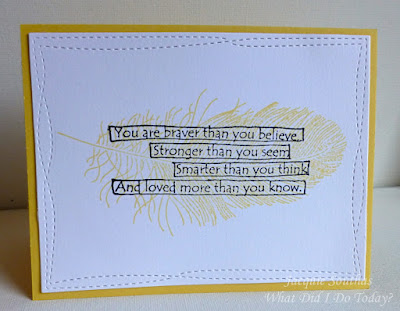 You are braver than you believe.
Stronger than you seem
Smarter than you think
And loved more than you know.
Jacquie Southas
What Did I Do Today?